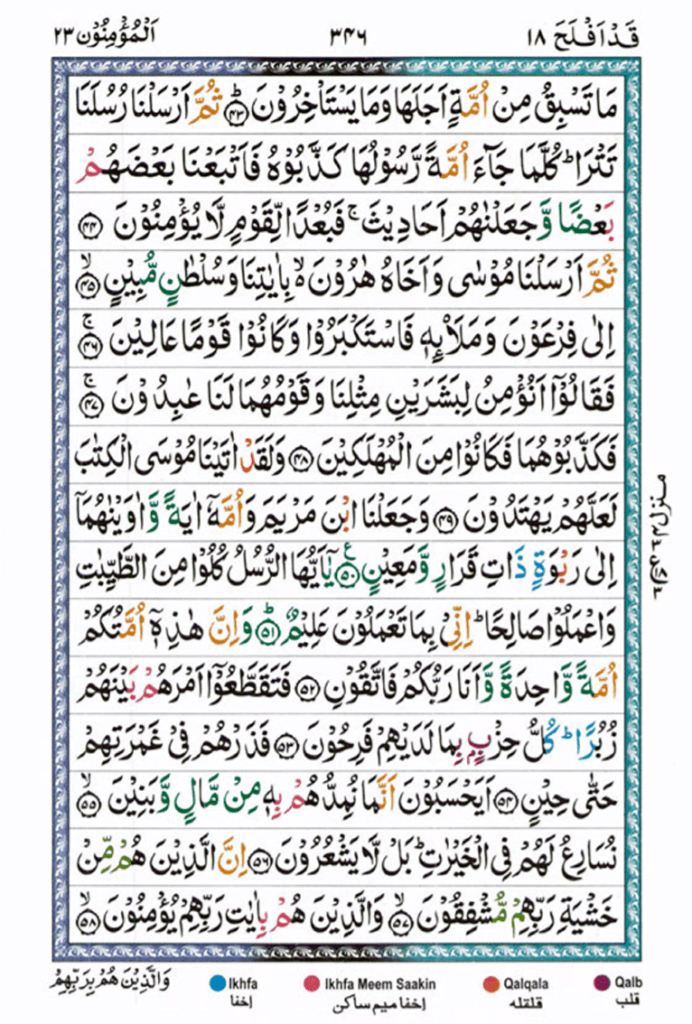 قَدْ اَفْلَحَ ١٨ ٣٤٦ اَلْمُؤْمِنُوْن ٢٣
مَا تَسْبِقُ مِنْ اُمَّةٍ اَجَلَهَا وَمَا يَسْتَاْخِرُوْنَ ؕ﴿۴۳﴾ ثُمَّ اَرْسَلْنَا رُسُلَنَا
تَتْرَا ؕ كُلَّمَا جَآءَ اُمَّةً رَّسُوْلُهَا كَذَّبُوْهُ فَاَتْبَعْنَا بَعْضَهُمْ
بَعْضًا وَّ جَعَلْنٰهُمْ اَحَادِيْثَ ۚ فَبُعْدًا لِّقَوْمٍ لَّا يُؤْمِنُوْنَ ﴿۴۴﴾
ثُمَّ اَرْسَلْنَا مُوْسٰى وَاَخَاهُ هٰرُوْنَ ۙ بِاٰيٰتِنَا وَسُلْطٰنٍ مُّبِيْنٍ ۙ﴿۴۵﴾
اِلٰى فِرْعَوْنَ وَمَلَا۟ئِهٖ فَاسْتَكْبَرُوْا وَكَانُوْا قَوْمًا عَالِيْنَ ۚ﴿۴۶﴾
فَقَالُوْٓا اَنُؤْمِنُ لِبَشَرَيْنِ مِثْلِنَا وَقَوْمُهُمَا لَنَا عٰبِدُوْنَ ۚ﴿۴۷﴾
فَكَذَّبُوْهُمَا فَكَانُوْا مِنَ الْمُهْلَكِيْنَ ﴿۴۸﴾ وَلَقَدْ اٰتَيْنَا مُوْسَى الْكِتٰبَ
لَعَلَّهُمْ يَهْتَدُوْنَ ﴿۴۹﴾ وَجَعَلْنَا ابْنَ مَرْيَمَ وَاُمَّهٗٓ اٰيَةً وَّاٰوَيْنٰهُمَآ
اِلٰى رَبْوَةٍ ذَاتِ قَرَارٍ وَّمَعِيْنٍ ﴿۵۰﴾ يٰٓاَيُّهَا الرُّسُلُ كُلُوْا مِنَ الطَّيِّبٰتِ
وَاعْمَلُوْا صَالِحًا ؕ اِنِّىْ بِمَا تَعْمَلُوْنَ عَلِيْمٌ ؕ﴿۵۱﴾ وَاِنَّ هٰذِهٖٓ اُمَّتُكُمْ
اُمَّةً وَّاحِدَةً وَّاَنَا رَبُّكُمْ فَاتَّقُوْنِ ﴿۵۲﴾ فَتَقَطَّعُوْٓا اَمْرَهُمْ بَيْنَهُمْ
زُبُرًا ؕ كُلُّ حِزْبٍۭ بِمَا لَدَيْهِمْ فَرِحُوْنَ ﴿۵۳﴾ فَذَرْهُمْ فِىْ غَمْرَتِهِمْ
حَتّٰى حِيْنٍ ﴿۵۴﴾ اَيَحْسَبُوْنَ اَنَّمَا نُمِدُّهُمْ بِهٖ مِنْ مَّالٍ وَّبَنِيْنَ ۙ﴿۵۵﴾
نُسَارِعُ لَهُمْ فِى الْخَيْرٰتِ ؕ بَلْ لَّا يَشْعُرُوْنَ ﴿۵۶﴾ اِنَّ الَّذِيْنَ هُمْ مِّنْ
خَشْيَةِ رَبِّهِمْ مُّشْفِقُوْنَ ۙ﴿۵۷﴾ وَالَّذِيْنَ هُمْ بِاٰيٰتِ رَبِّهِمْ يُؤْمِنُوْنَ ۙ﴿۵۸﴾
وَالَّذِيْنَ هُمْ بِرَبِّهِمْ
Ikhfa Ikhfa Meem Saakin Qalqala Qalb
إخفا إخفا میم ساکن قلقلہ قلب